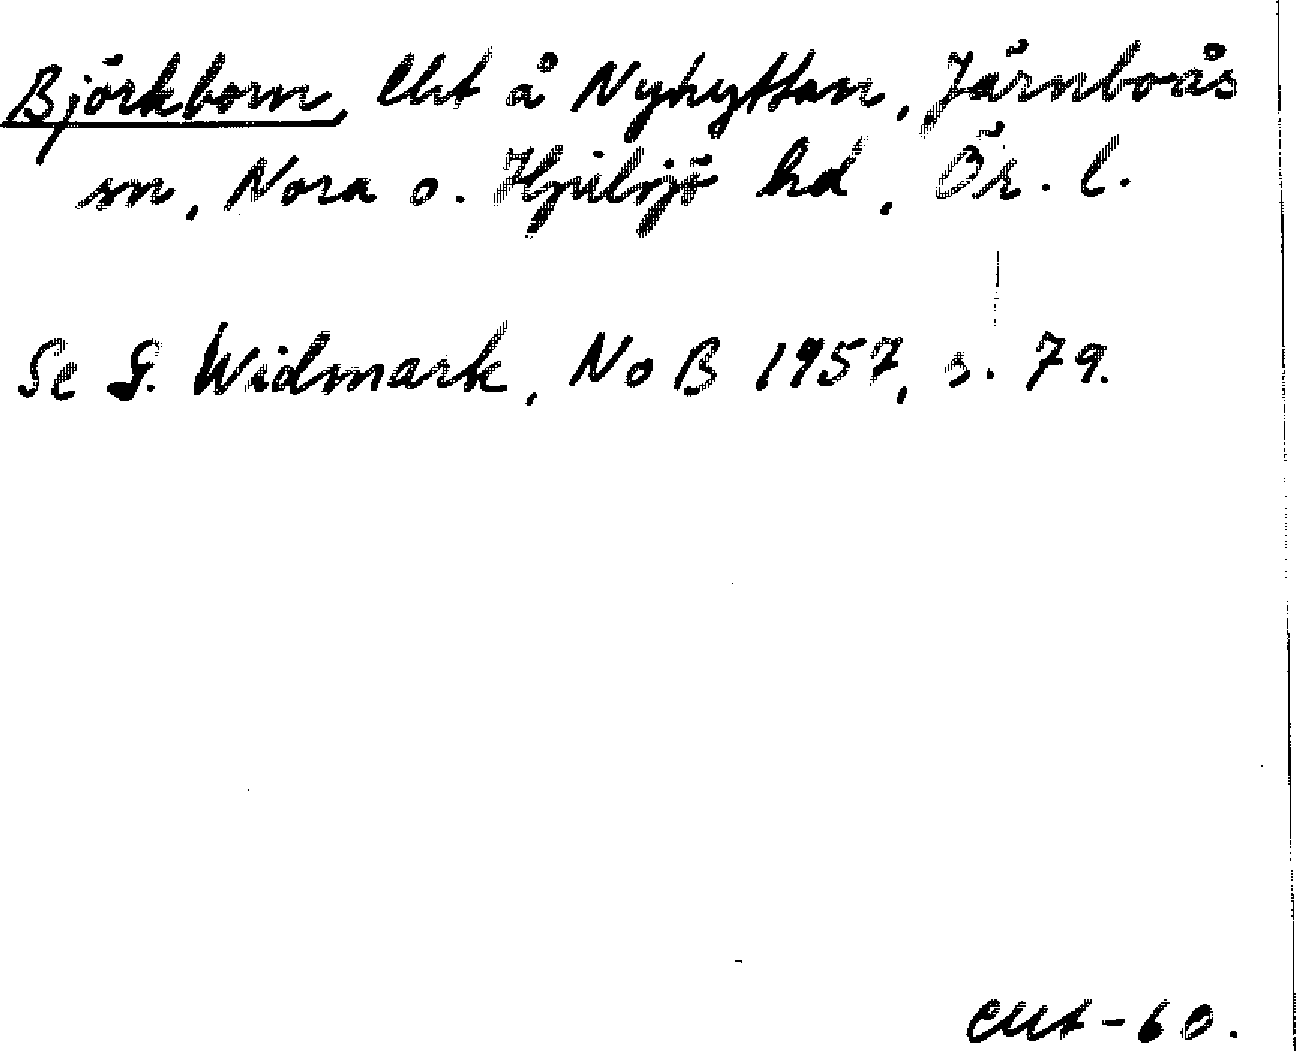 Björkborn, lht å Nyhyttan, Järnboås
sn, Nora o. Hjulsjö hd, Ör. l.
Se G. Widmark, NoB 1957, s. 79.